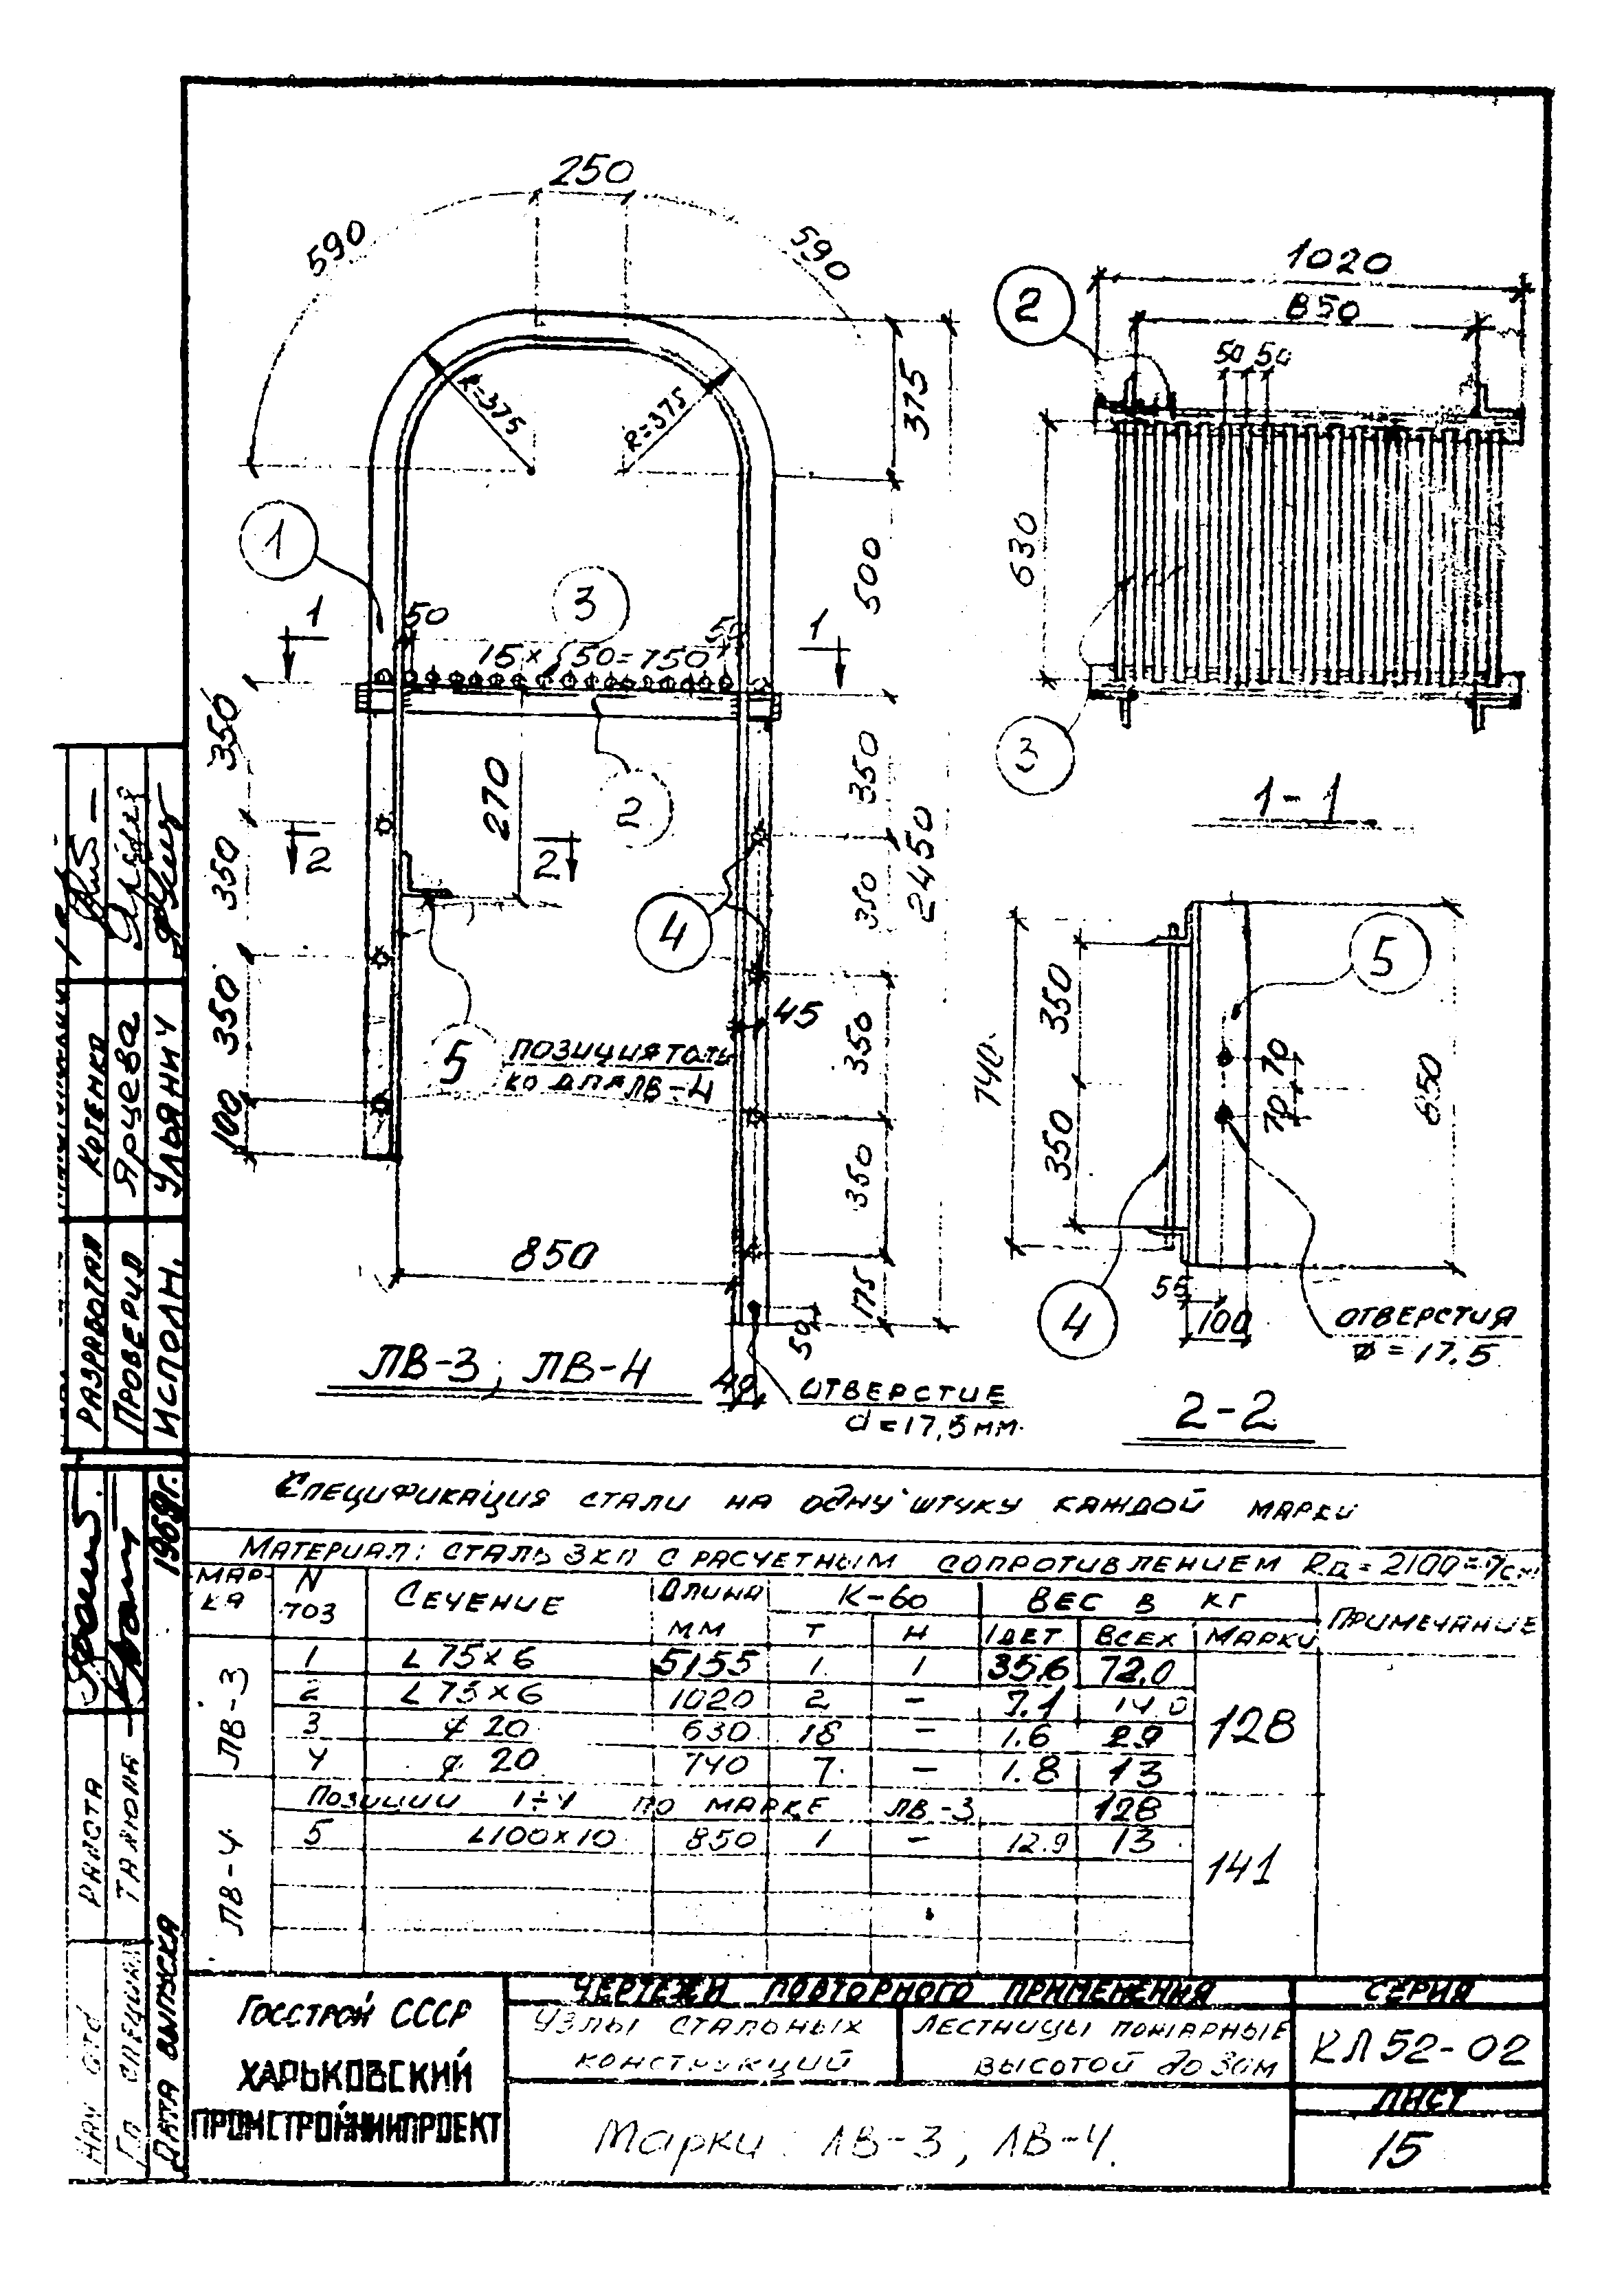 250
590
590
R=375
R=375
375
1
50
3
50
15×50=750
1
1
500
350
350
350
100
270
2
2
2
350
2450
350
4
45
350
5
ПОЗИЦИЯ ТОЛЬ
КО ДЛЯ ЛВ-4
350
850
175
50
40
ОТВЕРСТИЕ
d=17,5 мм.
ЛВ-3; ЛВ-4
2
1020
850
50 50
630
3
1-1
5
740
350
350
70
70
650
4
55
100
ОТВЕРСТИЯ
ø=17.5
2-2
СПЕЦИФИКАЦИЯ СТАЛИ НА ОДНУ ШТУКУ КАЖДОЙ МАРКИ
МАТЕРИАЛ: СТАЛЬ 3КП С РАСЧЕТНЫМ СОПРОТИВЛЕНИЕМ
МАР-
КА
N
ПОЗ
СЕЧЕНИЕ
ДЛИНА
ММ
К-ВО
Т Н
ВЕС В КГ
1ДЕТ ВСЕХ МАРКИ
ПРИМЕЧАНИЕ
ЛВ-3
1 L 75×6 5155 1 1 35.6 72.0
2 L 75×6 1020 2 - 7.1 14.0
3 ø 20 630 18 - 1.6 29
4 ø 20 740 7 - 1.8 13
128
ЛВ-4
ПОЗИЦИИ 1÷4 ПО МАРКЕ ЛВ-3 128
5 L100×10 850 1 - 12.9 13
141
ГОССТРОЙ СССР
ХАРЬКОВСКИЙ
ПРОМСТРОЙНИИПРОЕКТ
ЧЕРТЕЖИ ПОВТОРНОГО ПРИМЕНЕНИЯ
УЗЛЫ СТАЛЬНЫХ
КОНСТРУКЦИЙ
ЛЕСТНИЦЫ ПОЖАРНЫЕ
ВЫСОТОЙ до 30м
Марки: ЛВ-3, ЛВ-4.
СЕРИЯ
КЛ 52-02
ЛИСТ
15
РАЗРАБОТАЛ КОТЕНКО
ПРОВЕРИЛ ЯРЦЕВА
ИСПОЛН. УЛЬЯНИЧ
НАЧ ОТД
ГЛ СПЕЦИАЛ
ДАТА ВЫПУСКА 1969г.